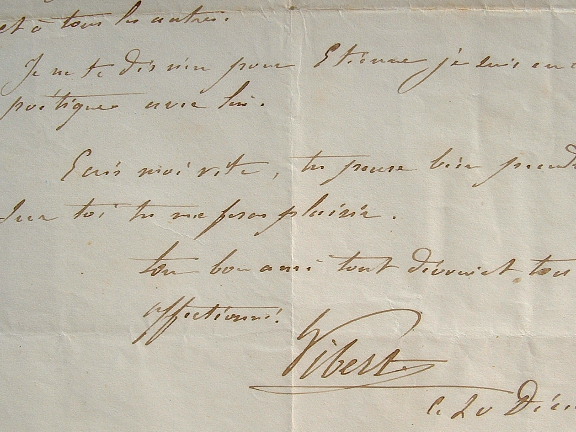 et à tous les autres.
Je ne te dis rien pour Etienne je suis en
poétique avec lui.
Ecris moi vite, tu penses bien
toi tu me feras plaisir.
ton bon ami tout dévoué et
affectionné.
Vibert